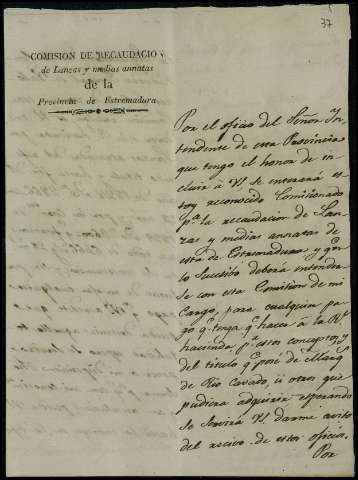 37
COMISION DE RECAUDACIO
de Lanzas y medias annatas
de la
Provincia de Estremadura.
Por el oficio del Señor Yn
tendente de esta Provincia
que tengo el honor de in
cluir à VS. se enterará es
toy reconocido Comisionado
pª la recaudacion de Lan
zas y medias annatas de
esta de Estremadura, y qe en
lo sucesivo deberá entender
se con esta Comision de mi
Cargo, para cualquier pa
go qe tenga qe hacer à la Rl
hacienda pr estos conceptos, y
del titulo qe posé de Marqs
de Rio Cavado, ú otros que
pudiera adquirir esperando
se servirá VS. darme aviso
del recivo de este oficio.
Por